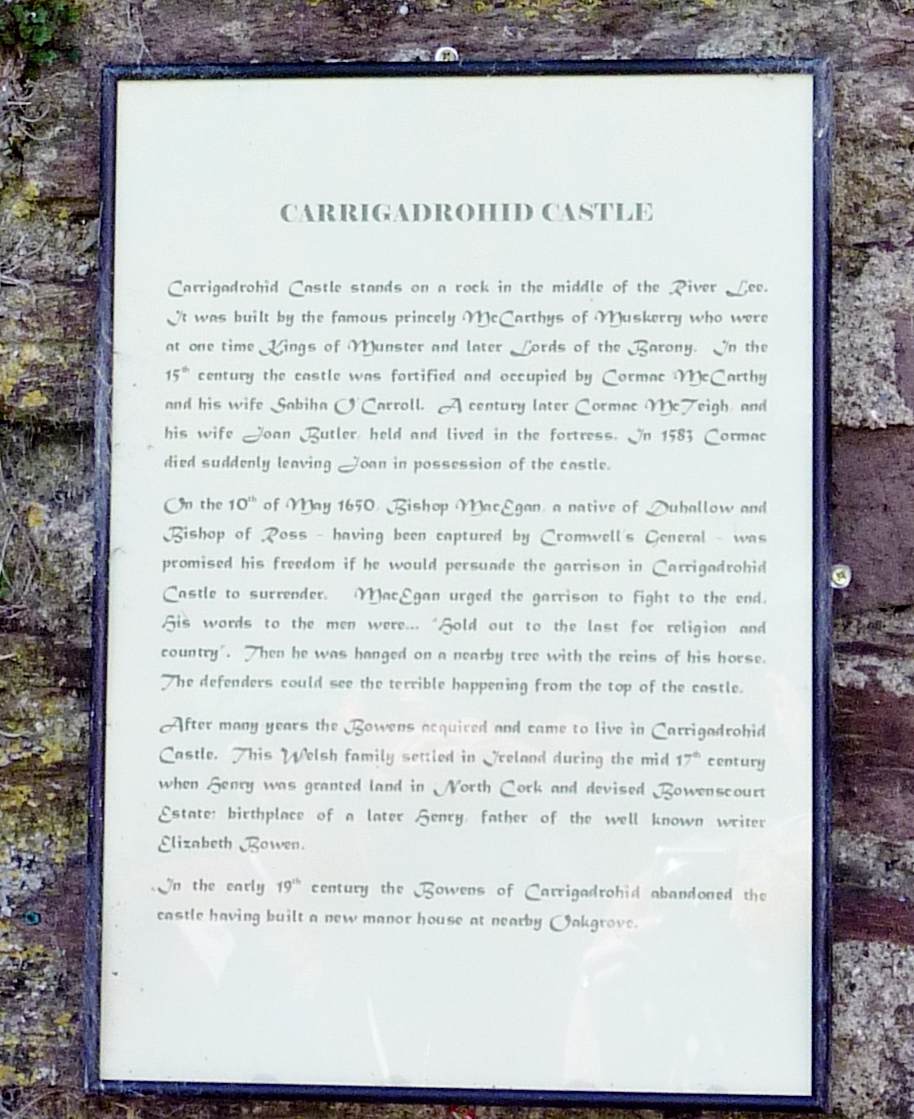 CARRIGADROHID CASTLE
Carrigadrohid Castle stands on a rock in the middle of the River Lee.
It was built by the famous princely McCarthys of Muskerry who were
at one time Kings of Munster and later Lords of the Barony. In the
15th century the castle was fortified and occupied by Cormac McCarthy
and his wife Sabiha O'Carroll. A century later Cormac McTeigh, and
his wife Joan Butler, held and lived in the fortress. In 1583 Cormac
died suddenly leaving Joan in possession of the castle.
On the 10th of May 1650, Bishop MacEgan, a native of Duhallow and
Bishop of Ross - having been captured by Cromwell's General - was
promised his freedom if he would persuade the garrison in Carrigadrohid
Castle to surrender. MacEgan urged the garrison to fight to the end.
His words to the men were... "Hold out to the last for religion and
country". Then he was hanged on a nearby tree with the reins of his horse.
The defenders could see the terrible happening from the top of the castle.
After many years the Bowens acquired and came to live in Carrigadrohid
Castle. This Welsh family settled in Ireland during the mid 17th century
when Henry was granted land in North Cork and devised Bowenscourt
Estate; birthplace of a later Henry, father of the well known writer
Elizabeth Bowen.
In the early 19th century the Bowens of Carrigadrohid abandoned the
castle having built a new manor house at nearby Oakgrove.